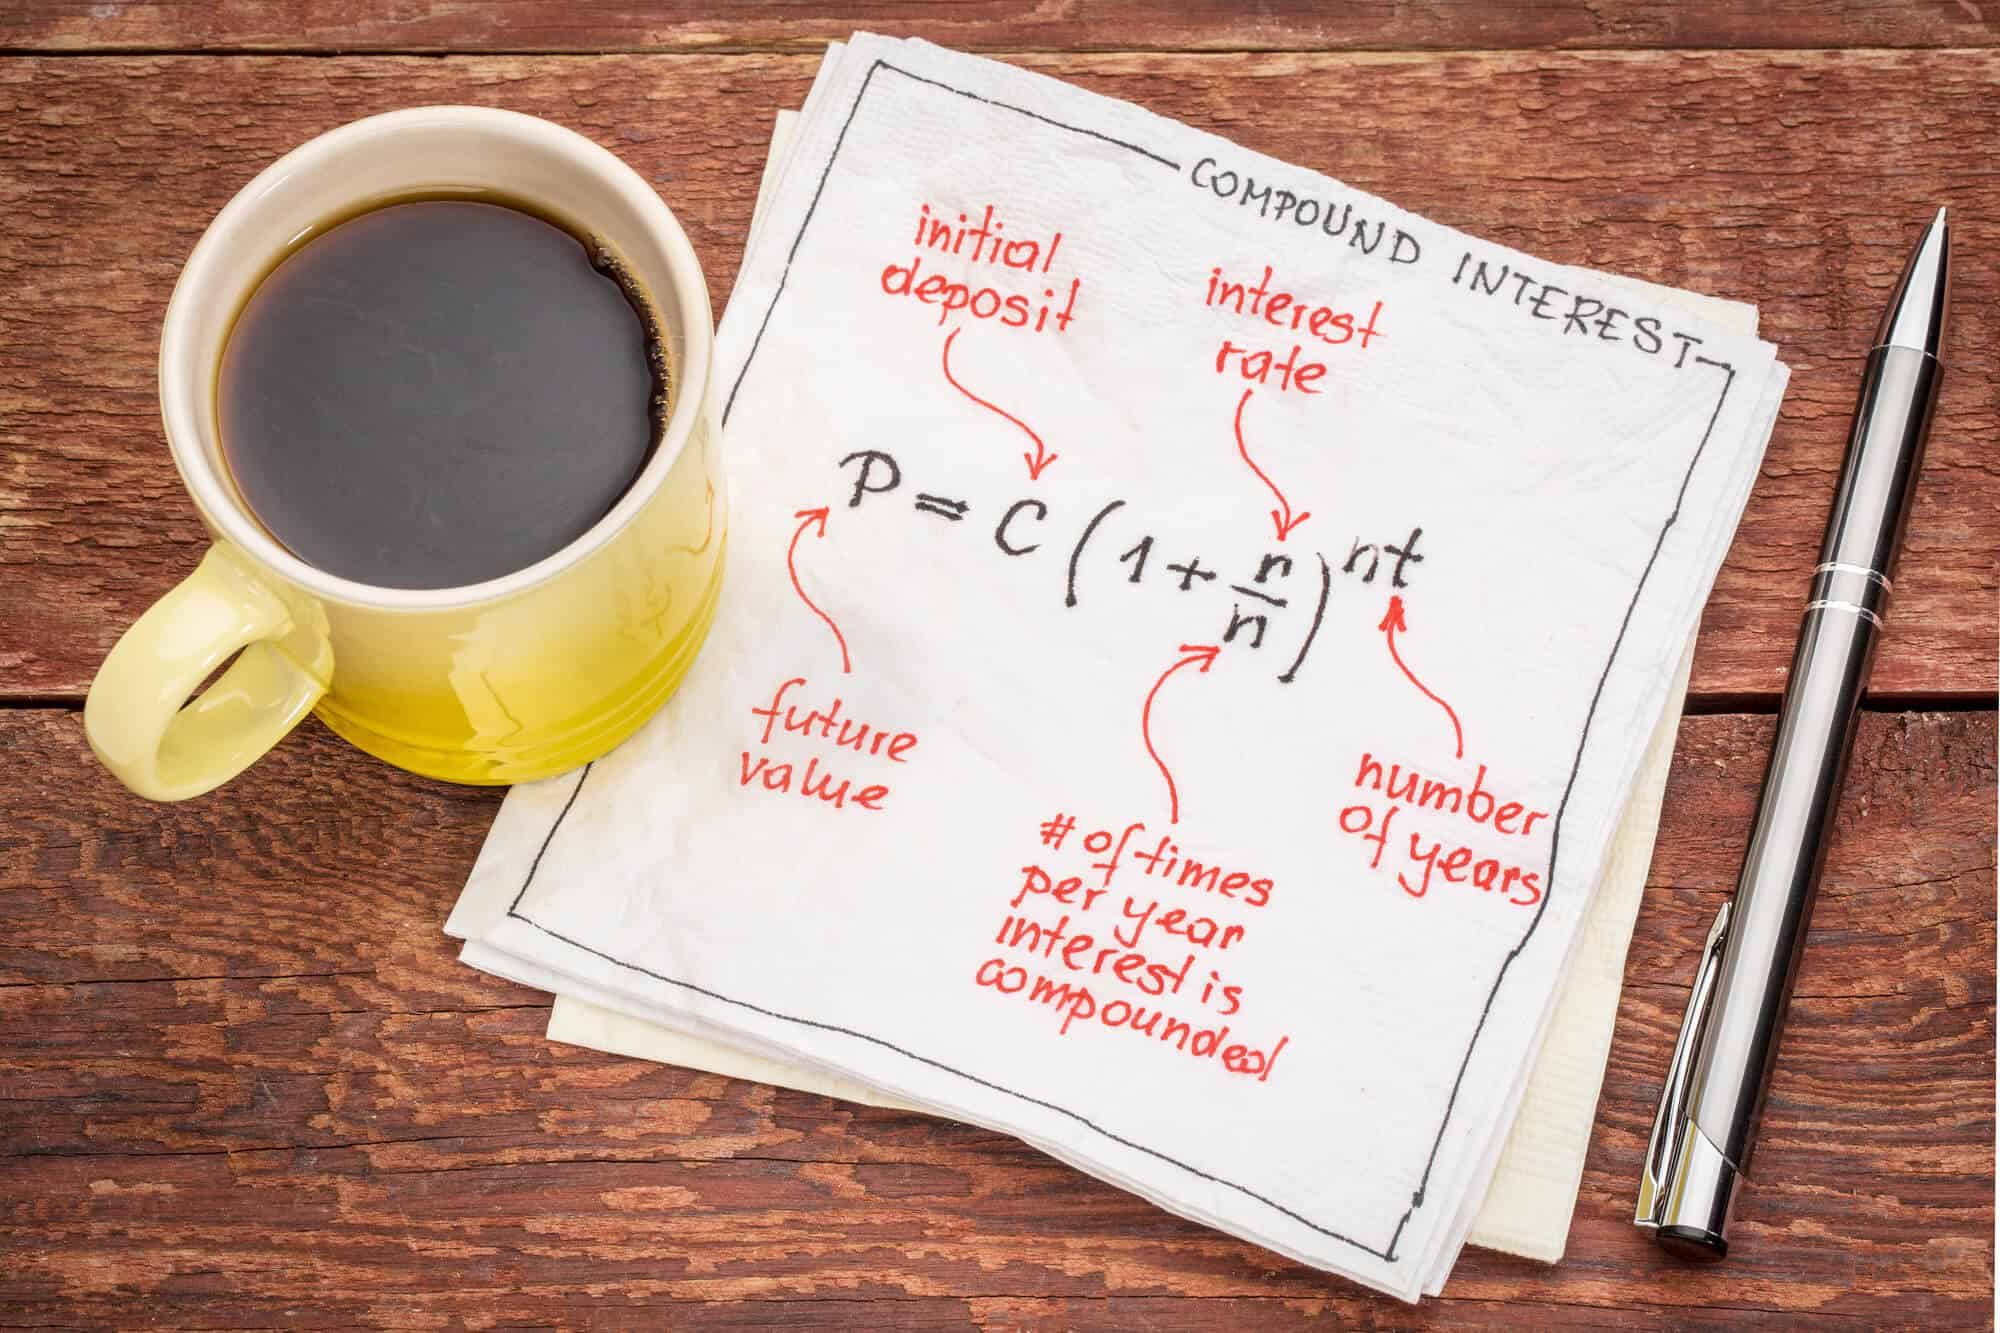 COMPOUND INTEREST
initial
deposit
interest
rate
P = C (1 + r/n)^nt
future
value
# of times
per year
interest is
compounded
number
of years